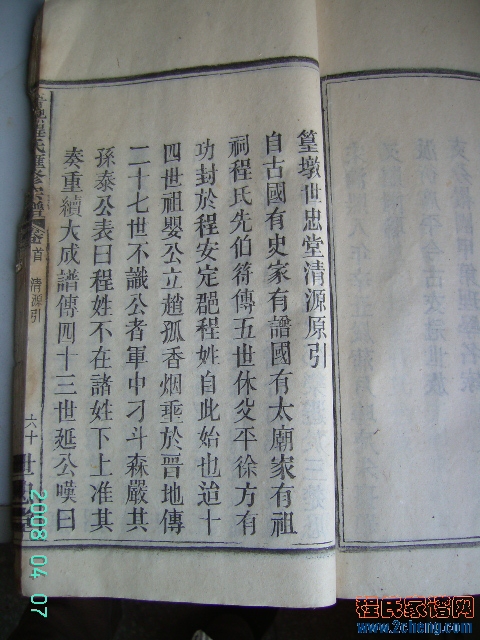 篁墩世忠堂清源原引
自古國有史家有譜國有太廟家有祖
祠程氏先伯符傳五世休父平徐方有
功封於程安定郡程姓自此始也迨十
四世祖嬰公立趙孤香烟垂於晉地傳
二十七世不識公者軍中刁斗森嚴其
孫泰公表曰程姓不在諸姓下上准其
奏重續大成譜傳四十三世延公嘆曰
程氏匯修宗譜 卷首 清源引
六十
2008 04 07
程氏家谱网
www.2chang.com